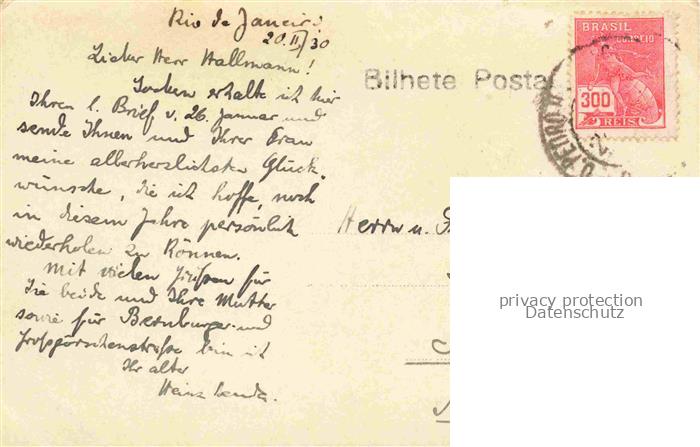 Rio de Janeiro
20.II.30
Lieber Herr Wallmann!
Soeben erhalte ich hier
Ihren l. Brief v. 26. Januar und
sende Ihnen und Ihrer Frau
meine allerherzlichsten Glück-
wünsche, die ich hoffe, noch
in diesem Jahre persönlich
wiederholen zu können.
Mit vielen Grüßen für
Sie beide und Ihre Mutter
sowie für Bernburger- und
Großgörschenstraße bin ich
Ihr alter
Heinz
Bilhete Postal
BRASIL
CORREIO
300
REIS
D. PEDRO II
Herrn u.
privacy protection
Datenschutz